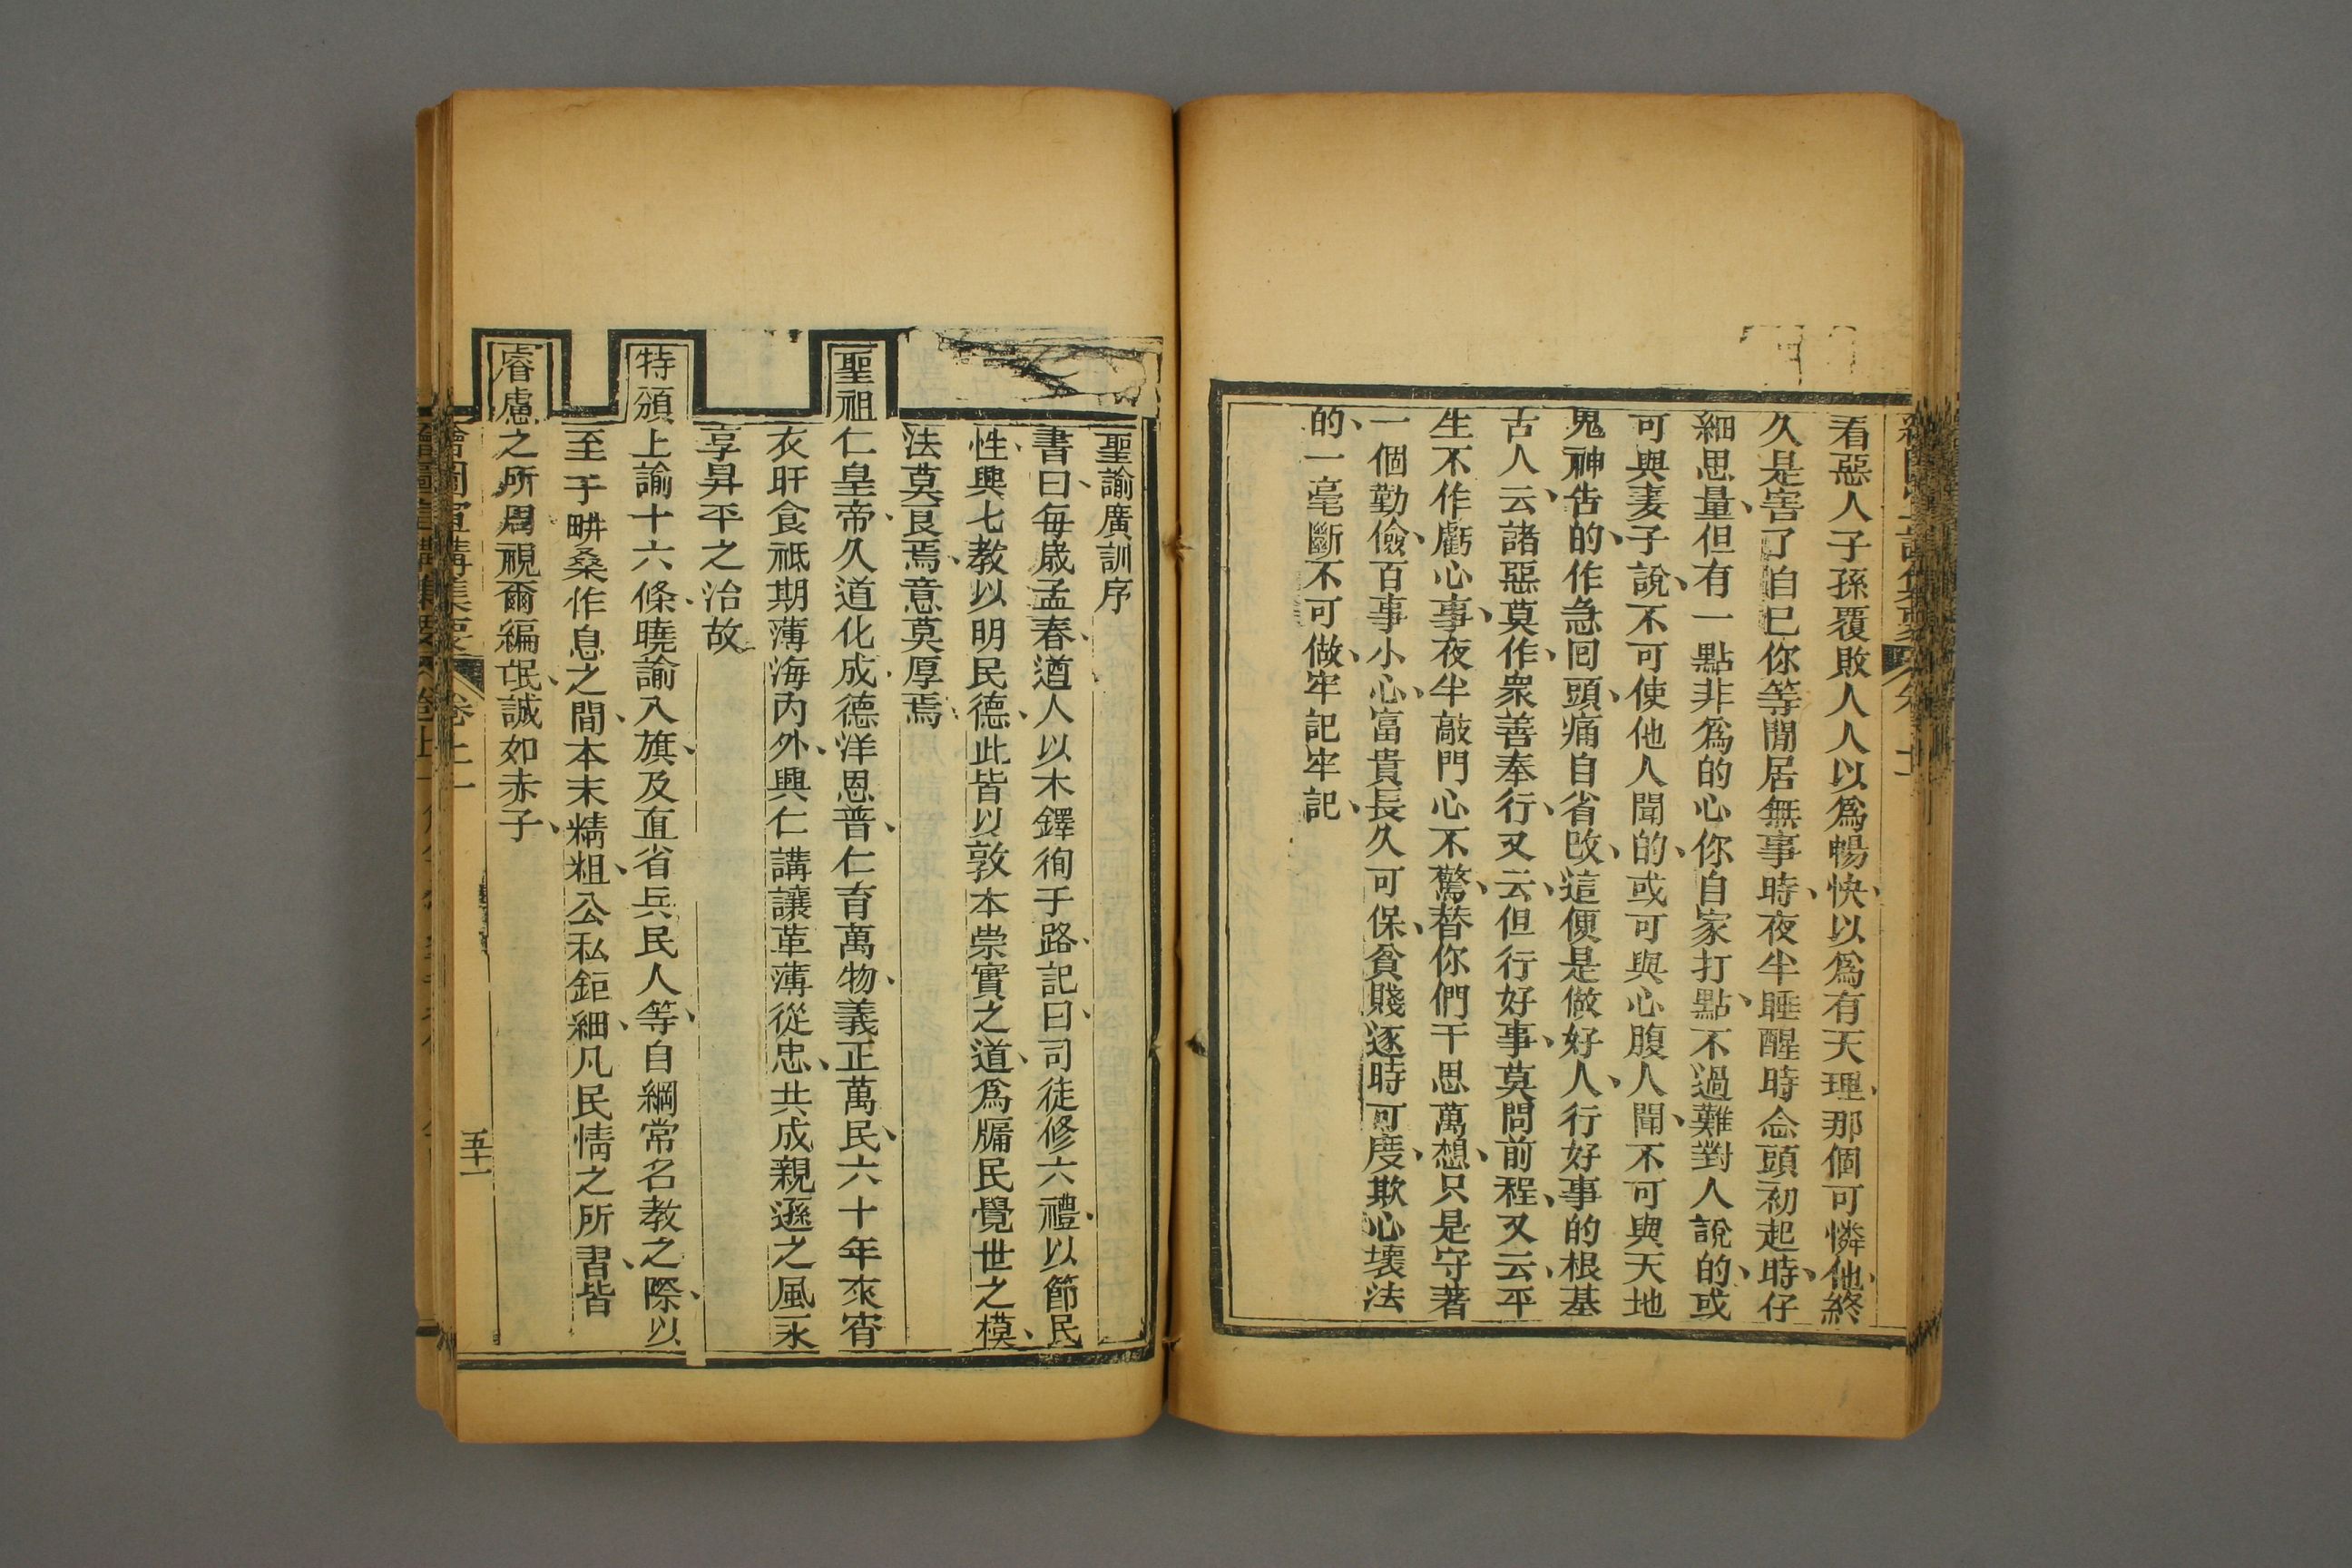 看惡人子孫覆敗人人以爲暢快以爲有天理那個可憐他終
久是害了自已你等閒居無事時夜半睡醒時念頭初起時仔
細思量但有一點非爲的心你自家打點不過難對人說的或
可與妻子說不可使他人聞的或可與心腹人聞不可與天地
鬼神告的作急囘頭痛自省改這便是做好人行好事的根基
古人云諸惡莫作衆善奉行又云但行好事莫問前程又云平
生不作虧心事夜半敲門心不驚替你們千思萬想只是守著
一個勤儉百事小心富貴長久可保貧賤逐時可度欺心壞法
的一毫斷不可做牢記牢記
聖諭廣訓序
書曰每歲孟春遒人以木鐸徇于路記曰司徒修六禮以節民
性興七教以明民德此皆以敦本崇實之道爲牖民覺世之模
法莫良焉意莫厚焉
聖祖仁皇帝久道化成德洋恩普仁育萬物義正萬民六十年來宵
衣旰食祗期薄海內外興仁講讓革薄從忠共成親遜之風永
享昇平之治故
特頒上諭十六條曉諭八旗及直省兵民人等自綱常名教之際以
至于畊桑作息之間本末精粗公私鉅細凡民情之所習皆
睿慮之所周視爾編氓誠如赤子
繪圖宣講集要 卷上一
五十一